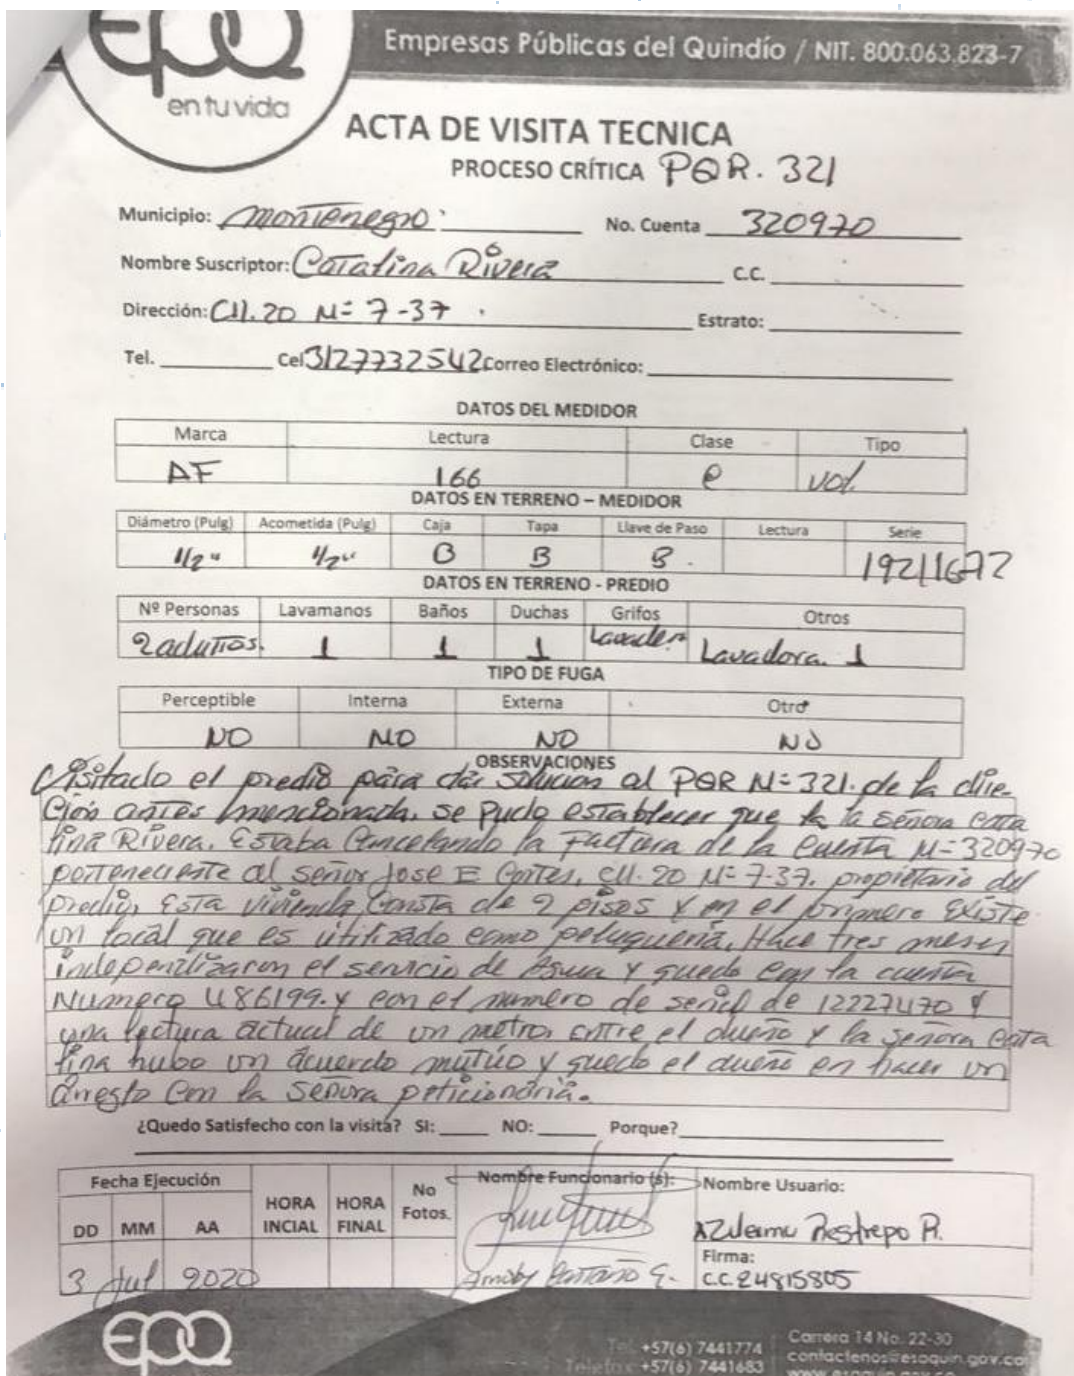 epq
en tu vida
Empresas Públicas del Quindío / NIT. 800.063.823-7
ACTA DE VISITA TECNICA
PROCESO CRÍTICA PQR. 321
Municipio: Montenegro. No. Cuenta 320970
Nombre Suscriptor: Catalina Rivera C.C.
Dirección: Cll. 20 N= 7-37 . Estrato:
Tel. Cel 3127732542 Correo Electrónico:
DATOS DEL MEDIDOR
Marca Lectura Clase Tipo
AF 166 C vol.
DATOS EN TERRENO – MEDIDOR
Diámetro (Pulg) Acometida (Pulg) Caja Tapa Llave de Paso Lectura Serie
1/2" 1/2" B B B. 19211672
DATOS EN TERRENO - PREDIO
Nº Personas Lavamanos Baños Duchas Grifos Otros
2 adultos. 1 1 1 Lavadero Lavadora. 1
TIPO DE FUGA
Perceptible Interna Externa Otro
NO NO NO NO
OBSERVACIONES
Visitado el predio para dar solucion al PQR N=321. de la dire-
Ción antes mencionada, se pudo establecer que la la señora Cata
lina Rivera. Estaba Cancelando la Factura de la Cuenta N=320970
perteneciente al señor Jose E Cortes, Cll. 20 N=7-37. propietario del
predio, Esta vivienda Consta de 2 pisos y en el primero Existe
un local que es utilizado como peluquería, Hace tres meses
independizaron el servicio de Agua y quedo con la cuenta
Numero 486199. y con el numero de serial de 12227470 y
una lectura actual de un metro, entre el dueño y la señora Cata
lina hubo un acuerdo mutúo y quedo el dueño en hacer un
arreglo con la Señora peticionária.
¿Quedo Satisfecho con la visita? SI: NO: Porque?
Fecha Ejecución HORA INCIAL HORA FINAL No Fotos. Nombre Funcionario (s): Nombre Usuario:
DD MM AA
Restrepo R.
Firma:
3 Jul 2020 C.C. 24815805
epq
Tel. +57(6) 7441774
Telefax: +57(6) 7441683
Carrera 14 No. 22-30
contactenos@esaquin.gov.co
www.esaquin.gov.co